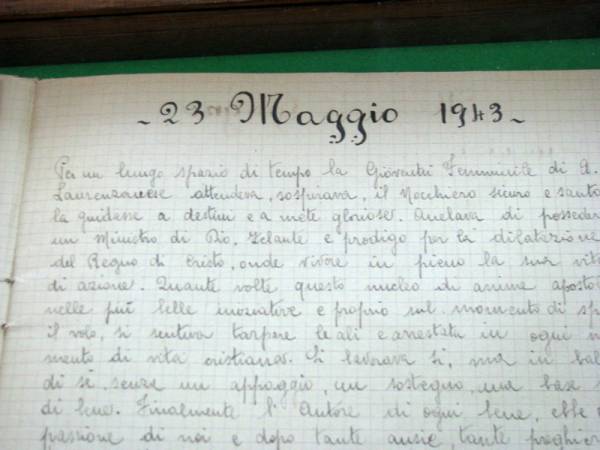 ~ 23 Maggio 1943 ~
Per un lungo spazio di tempo la Gioventù Femminile di A.
Laurenzanese attendeva, sospirava, il Nocchiero sicuro e santo
la guidasse a destini e a mete gloriose. Anelava di posseder
un Ministro di Dio, Zelante e prodigo per la dilatazione
del Regno di Cristo, onde vivere in pieno la sua vita
di azione. Quante volte questo nucleo di anime aposto
nelle più belle iniziative e proprio sul momento di sp
il volo, si sentiva tarpare le ali e arrestata in ogni m
mento di vita cristiana. Si lavorava sì, ma in bal
di sè, senza un appoggio, un sostegno, una base
di luce. Finalmente l'Autore di ogni bene, ebbe
passione di noi e dopo tante ansie, tante preghier